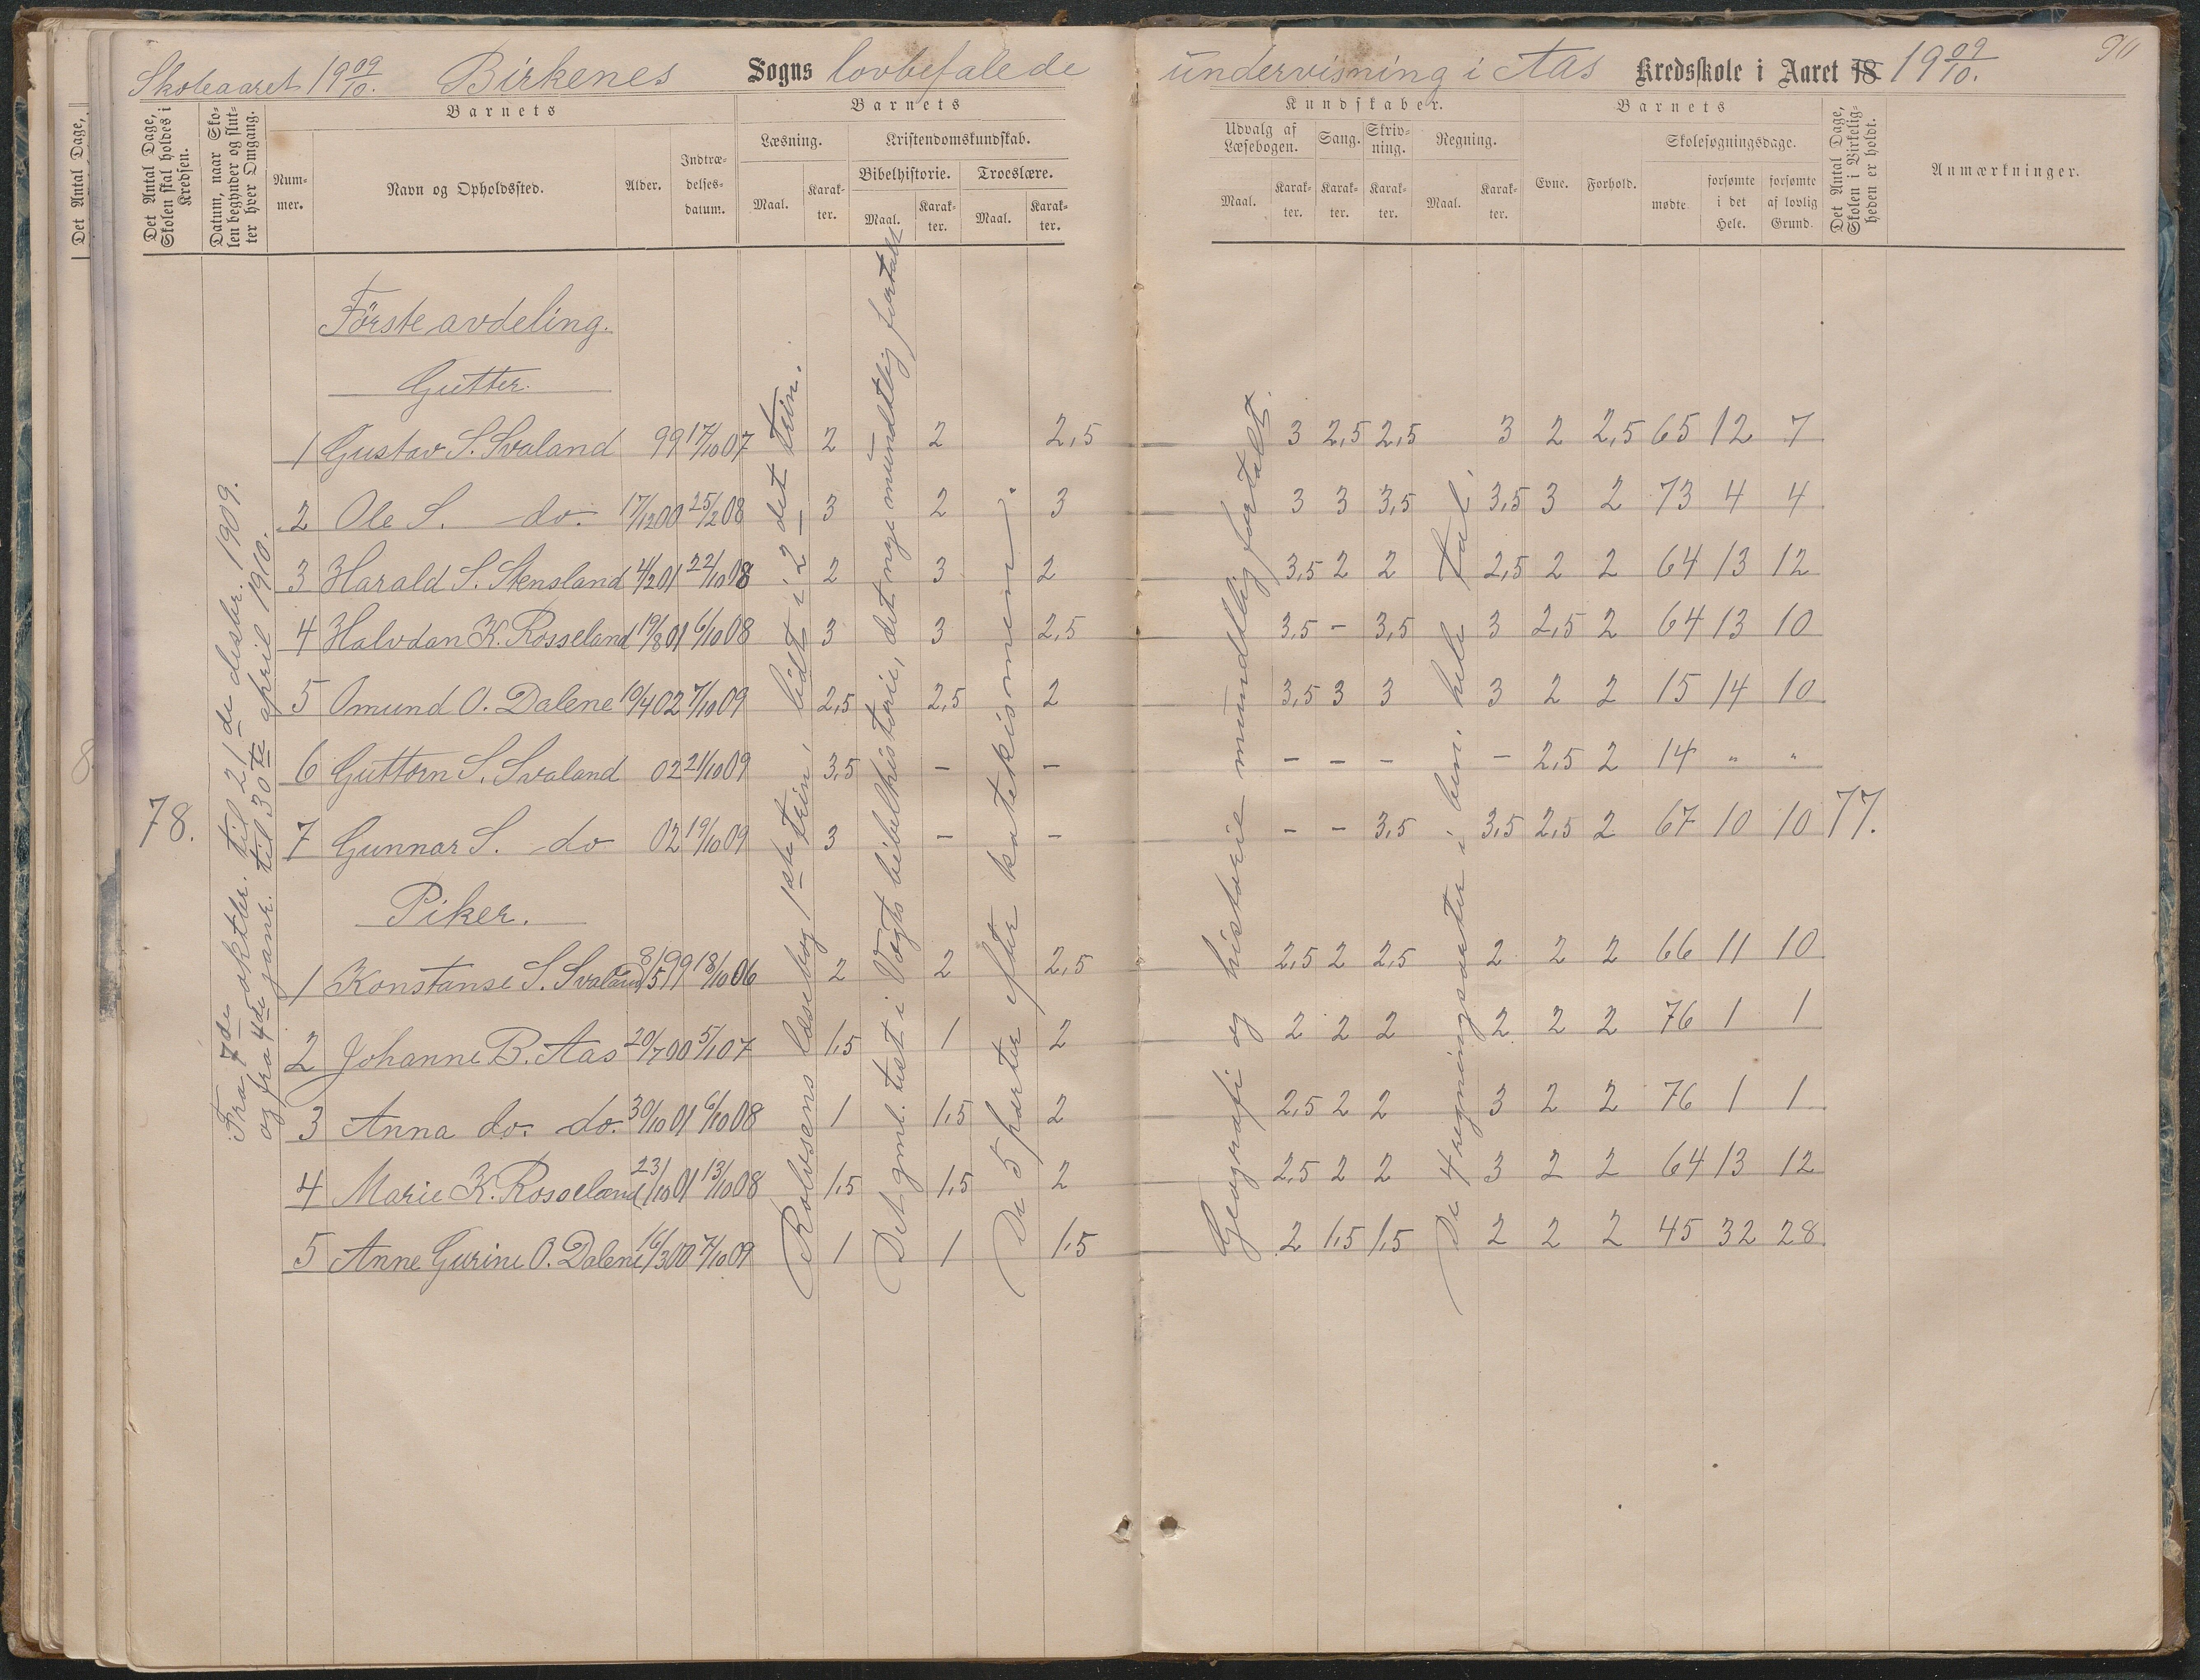 Skoleaaret 19 09/10. Birkenes Sogns lovbefalede undervisning i Aas Kredsskole i Aaret 18 19 09/10. 90
Det Antal Dage,
Det Antal Dage, Skolen skal holdes i Kredsen.
Datum, naar Skolen begynder og slutter hver Omgang.
Barnets
Nummer.
Navn og Opholdssted.
Alder.
Indtrædelsesdatum.
Barnets
Læsning.
Maal.
Karakter.
Kristendomskundskab.
Bibelhistorie.
Maal.
Karakter.
Troeslære.
Maal.
Karakter.
Kundskaber.
Udvalg af Læsebogen.
Maal.
Karakter.
Sang.
Karakter.
Skrivning.
Karakter.
Regning.
Maal.
Karakter.
Barnets
Evne.
Forhold.
Skolesøgningsdage.
mødte
forsømte i det Hele.
forsømte af lovlig Grund.
Det Antal Dage, Skolen i Virkeligheden er holdt.
Anmærkninger.
78.
Fra 7de oktbr. til 21de desbr. 1909.
og fra 4de janr. til 30te april 1910.
Første avdeling.
Gutter.
1 Gustav S. Svaland 99 17/10 07 2 2 2,5 3 2,5 2,5 3 2 2,5 65 12 7
2 Ole S. do. 17/12 00 25/2 08 3 2 3 3 3 3,5 3,5 3 2 73 4 4
3 Harald S. Stensland 4/2 01 22/10 08 2 3 2 3,5 2 2 2,5 2 2 64 13 12
4 Halvdan K. Rosseland 19/8 01 6/10 08 3 3 2,5 3,5 - 3,5 3 2,5 2 64 13 10
5 Omund O. Dalene 19/4 02 7/10 09 2,5 2,5 2 3,5 3 3 3 2 2 15 14 10
6 Guttorn S. Svaland 02 21/10 09 3,5 - - - - - - 2,5 2 14 " "
7 Gunnar S. do 02 19/10 09 3 - - - - 3,5 3,5 2,5 2 67 10 10 77.
Piker.
1 Konstanse S. Svaland 8/5 99 18/10 06 2 2 2,5 2,5 2 2,5 2 2 2 66 11 10
2 Johanne B. Aas 20/7 00 5/1 07 1,5 1 2 2 2 2 2 2 2 76 1 1
3 Anna do. do. 30/10 01 6/10 08 1 1,5 2 2,5 2 2 3 2 2 76 1 1
4 Marie K. Rosseland 23/10 01 13/10 08 1,5 1,5 2 2,5 2 2 3 2 2 64 13 12
5 Anne Gurine O. Dalene 16/3 00 7/10 09 1 1 1,5 2 1,5 1,5 2 2 2 45 32 28
Rolvsens læsebog 1ste trin, lidt i 2det trin.
Det gml. test. i Vogts bibelhistorie, det nye mundtlig fortalt.
De 5 parter efter katekismen.
Geografi og historie mundtlig fortalt.
De 4 regningsarter i ben. hele tal.